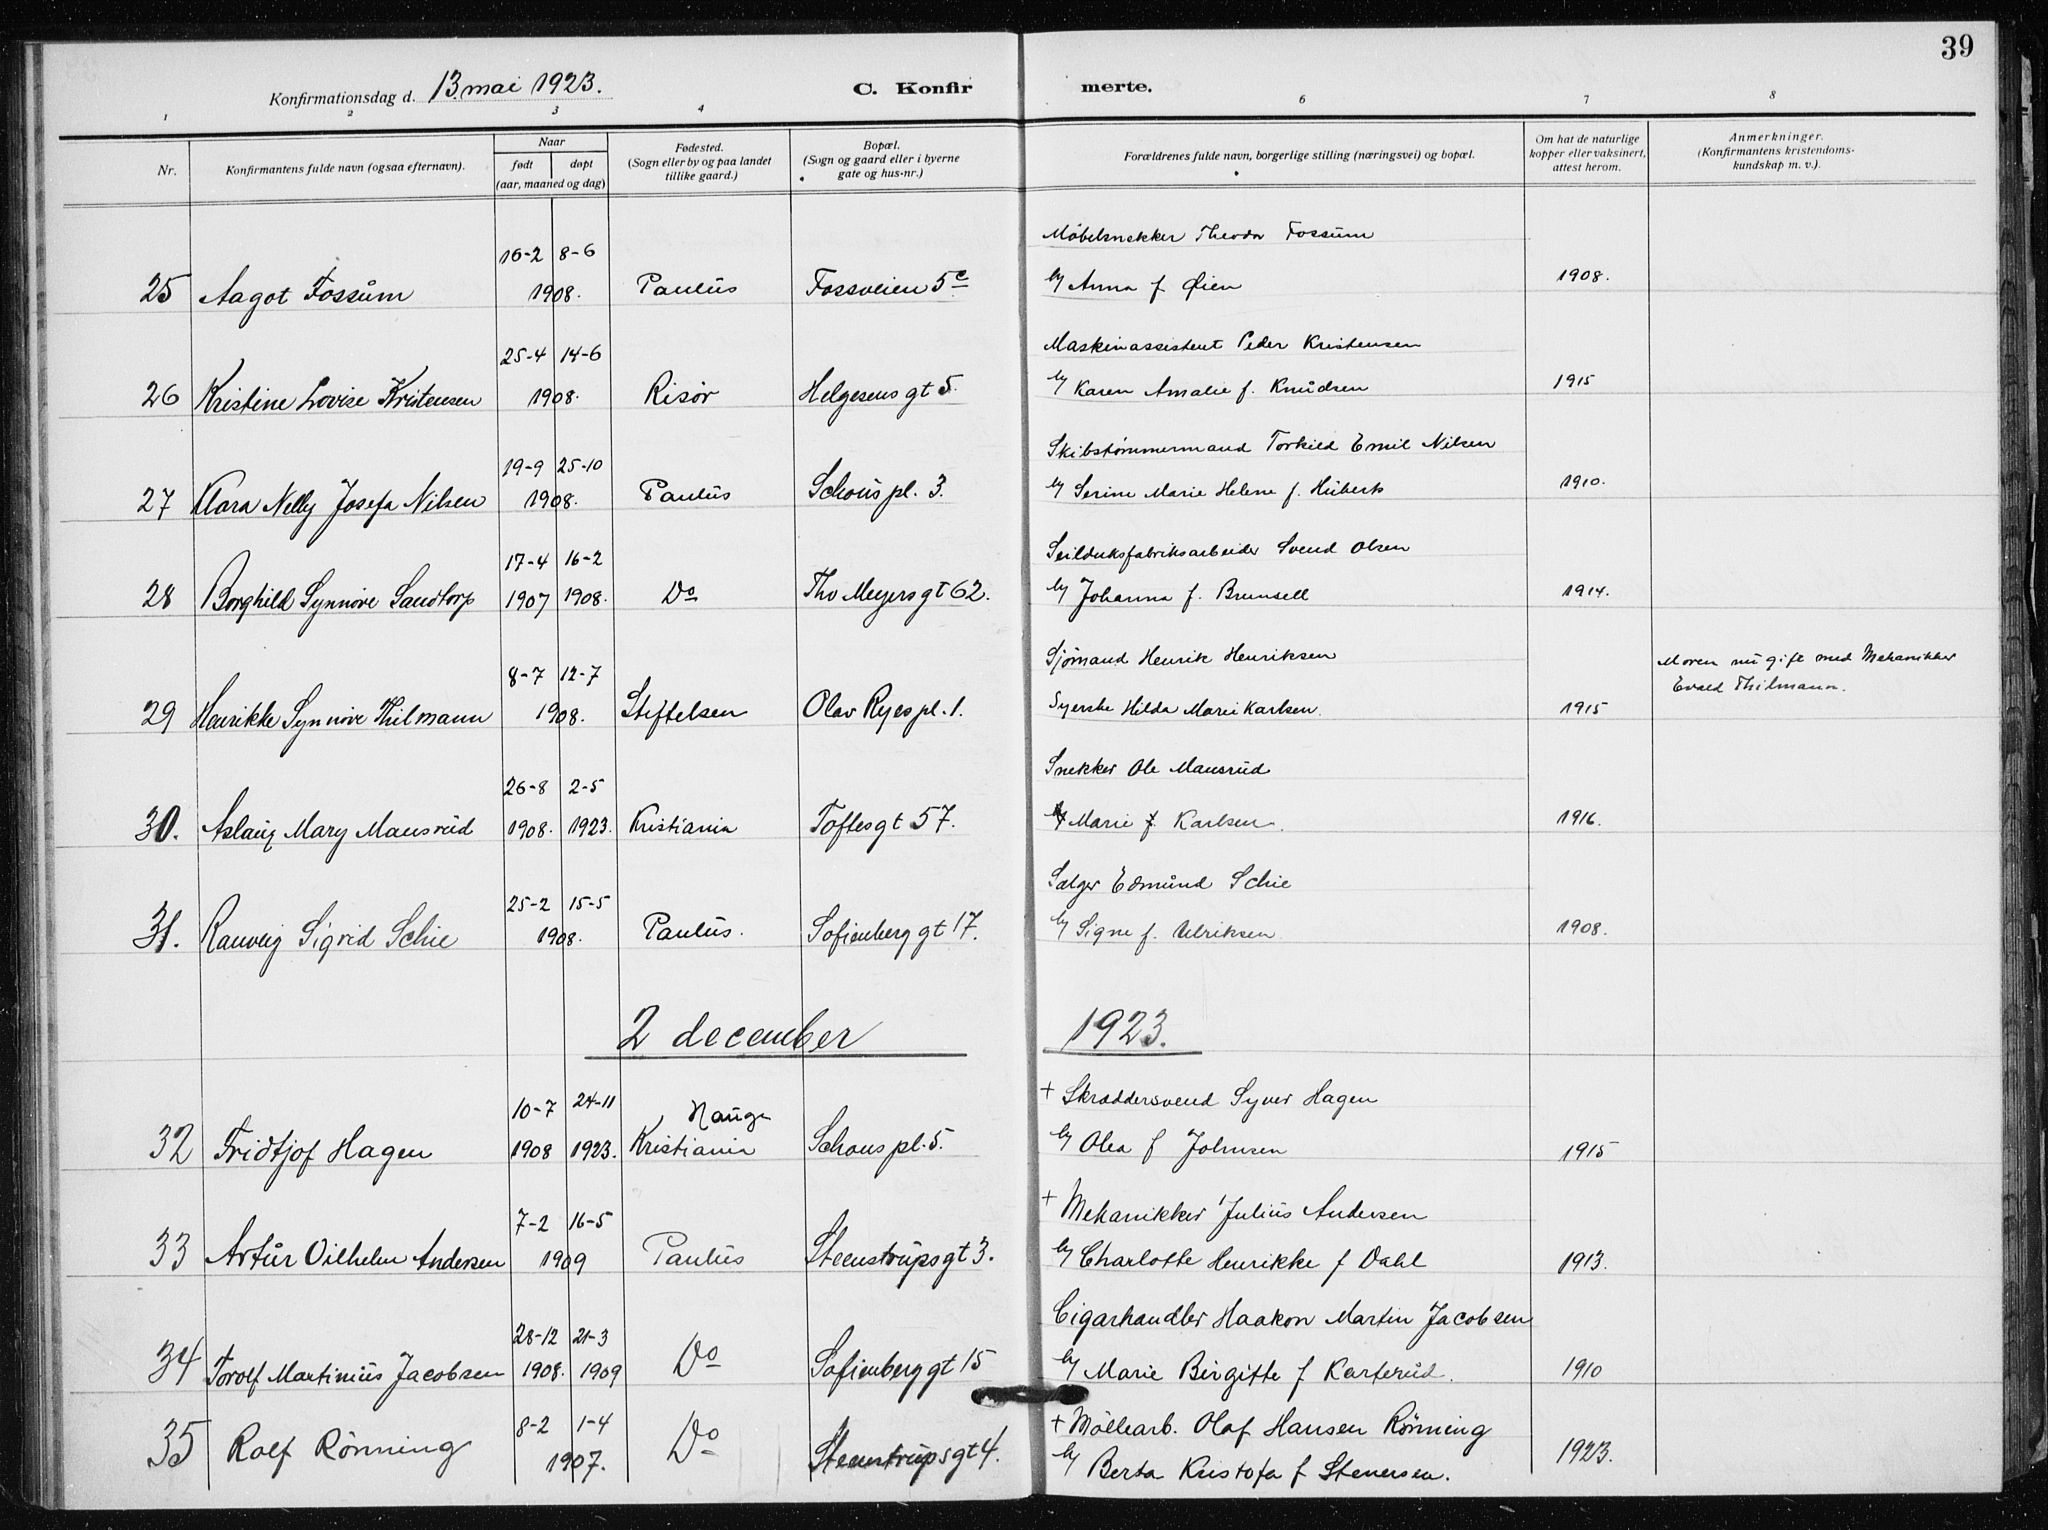 39
Konfirmationsdag d. 13. mai 1923. C. Konfirmerte.
1 2 3 4 6 7 8
Nr. Konfirmantens fulde navn (ogsaa efternavn). Naar født døpt (aar, maaned og dag) Fødested. (Sogn eller by og paa landet tillike gaard.) Bopæl. (Sogn og gaard eller i byerne gate og hus-nr.) Forældrenes fulde navn, borgerlige stilling (næringsvei) og bopæl. Om hat de naturlige kopper eller vaksinert, attest herom. Anmerkninger. (Konfirmantens kristendomskundskap m. v.).
16-2 8-6 Møbelsnekker Theodor Fossum
25 Aagot Fossum 1908. Paulus Fossveien 5c Anna f. Øien 1908.
25-4 14-6 Maskinassistent Peder Kristensen
26 Kristine Lovise Kristensen 1908. Risør Helgesens gt 5. Karen Amalie f. Knudsen 1915
19-9 25-10 Skibstømmermand Torkild Emil Nilsen
27 Klara Nelly Josefa Nilsen 1908. Paulus Schous pl. 3. Serine Marie Helene f. Huberts 1910.
17-4 16-2 Seilduksfabriksarbeider Svend Olsen
28 Borghild Synnøve Sandtorp 1907 1908. Do Thv Meyers gt 62. Johanna f. Brunsell 1914.
8-7 12-7 Sjömand Henrik Henriksen Moren nu gift med Mekanikker
Evald Thilmann.
29 Henrikke Synnøve Thilmann 1908. Stiftelsen Olav Ryes pl. 1. Syerske Hilda Marie Karlsen. 1915
26-8 2-5 Snekker Ole Mausrud
30. Aslaug Mary Mausrud 1908. 1923. Kristiania Toftes gt 57. Marie f. Karlsen. 1916.
25-2 15-5 Sælger Edmund Schie
31. Rauveig Sigrid Schie 1908. Paulus. Sofienberg gt 17. Signe f. Ulriksen 1908.
2 december 1923.
10-7 24-11 Hauge + Skræddersvend Syver Hagen
32 Fridtjof Hagen 1908 1923. Kristiania Schous pl. 5. Olea f Johnsen 1915
7-2 16-5 + Mekanikker Julius Andersen
33 Artur Vilhelm Andersen 1909 Paulus Steenstrups gt 3. Charlotte Henrikke f Dahl 1913.
28-12 21-3 Cigarhandler Haakon Martin Jacobsen
34 Torolf Martinius Jacobsen 1908. 1909 Do Sofienberg gt 15 Marie Birgitte f Karterud. 1910
8-2 1-4 + Möllearb. Olaf Hansen Rönning
35 Rolf Rönning 1907. Do Steenstrups gt 4. Berta Kristofa f Stenersen. 1923.